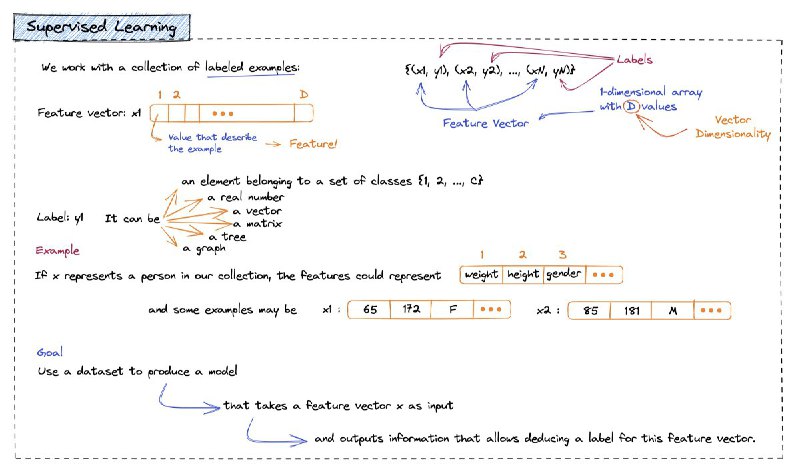 Supervised Learning
We work with a collection of labeled examples:
{(x1, y1), (x2, y2), ..., (xN, yN)}
Labels
1 2 D
Feature vector: x1 •••
Value that describe
the example
Feature!
Feature Vector
1-dimensional array
with D values
Vector
Dimensionality
an element belonging to a set of classes {1, 2, ..., C}
a real number
a vector
Label: y1 It can be
a matrix
a tree
a graph
Example
1 2 3
If x represents a person in our collection, the features could represent weight height gender •••
and some examples may be x1 : 65 172 F ••• x2 : 85 181 M •••
Goal
Use a dataset to produce a model
that takes a feature vector x as input
and outputs information that allows deducing a label for this feature vector.